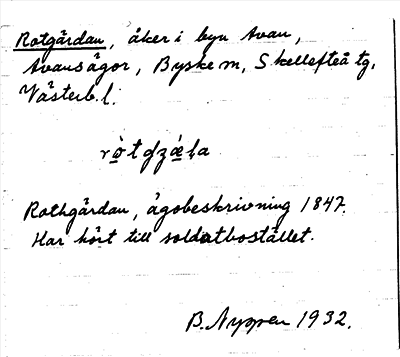 Rotgärdan, åker i byn Avan,
Avansägor, Byske sn, Skellefteå tg,
Västerb. l.
Rothgärdan, ägobeskrivning 1847.
Har hört till soldatbostället.
B. Nyppen 1932.